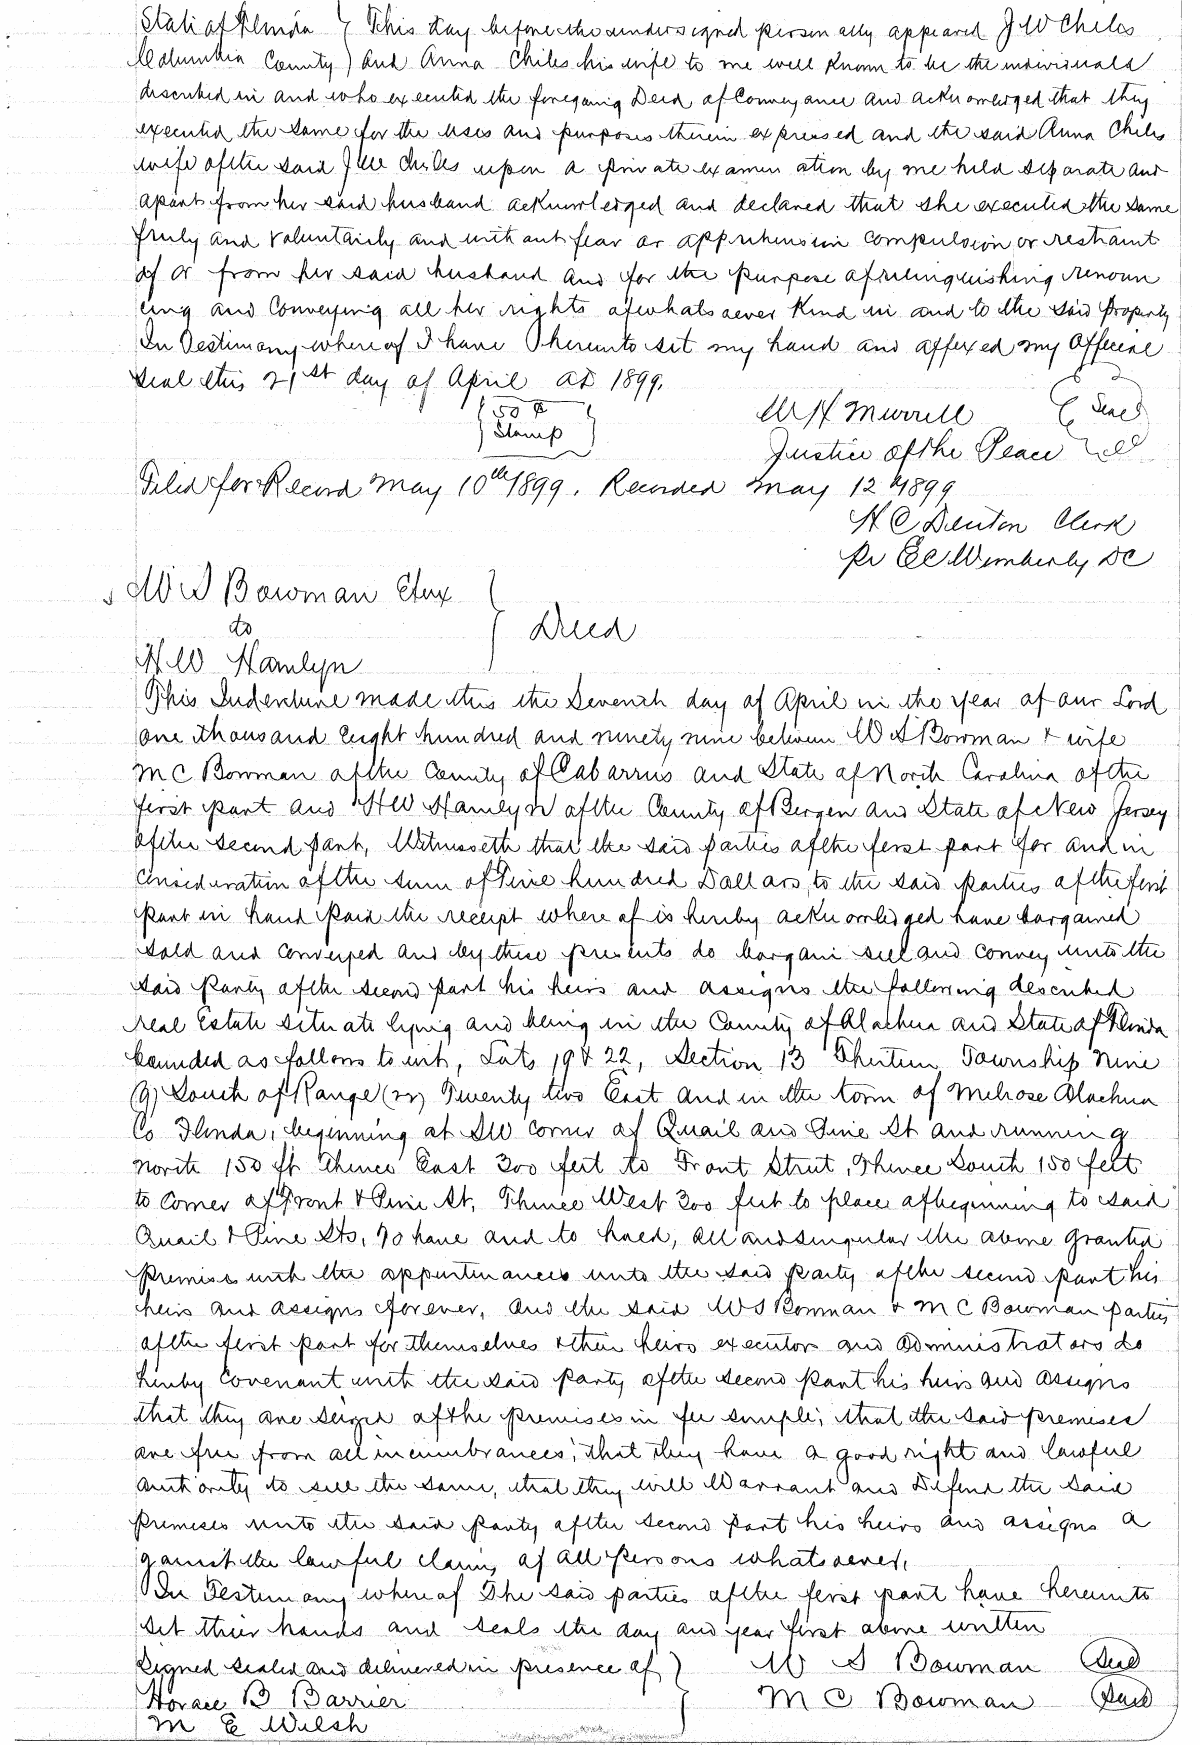 State of Florida } This day before the undersigned personally appeared J W Chiles
Columbia County } and Anna Chiles his wife to me well known to be the individuals
described in and who executed the foregoing Deed of Conveyance and acknowledged that they
executed the same for the uses and purposes therein expressed and the said Anna Chiles
wife of the said J W Chiles upon a private examination by me held separate and
apart from her said husband acknowledged and declared that she executed the same
fruly and voluntarily and without fear or apprehension compulsion or restraint
of or from her said husband and for the purpose of relinquishing renoun
cing and Conveying all her rights of whatsoever Kind in and to the said property
In Testimony whereof I have hereunto set my hand and affixed my official
seal this 21st day of April AD 1899.
{50 ¢ Stamp}
W H Murrell (Seal)
Justice of the Peace
Filed for Record May 10th 1899. Recorded May 12th 1899
H C Denton Clerk
Pr E C Wimberly DC
W S Bowman Etux
to } Deed
H W Hamlyn
This Indenture made this the Seventh day of April in the year of our Lord
one thousand Eight hundred and ninety nine between W S Bowman & wife
M C Bowman of the County of Cabarrus and State of North Carolina of the
first part and H W Hamlyn of the County of Bergen and State of New Jersey
of the second part, Witnesseth that the said parties of the first part for and in
Consideration of the sum of Five hundred Dollars, to the said parties of the first
part in hand paid the receipt where of is hereby acknowledged have bargained
sold and conveyed and by these presents do bargain sell and convey unto the
said party of the second part his heirs and assigns the following described
real Estate situate lying and being in the County of Alachua and State of Florida
bounded as follows to wit, Lots 19 & 22, Section 13 Thirteen Township Nine
(9) South of Range (22) Twenty two East and in the town of Melrose Alachua
Co Florida, beginning at SW corner of Quail and Pine St and running
north 150 ft Thence East 300 feet to Front Street, Thence South 150 feet
to Corner of Front & Pine St, Thence West 300 feet to place of beginning to said
Quail & Pine Sts, To have and to hold, all and singular the above granted
premises with the appurtenances unto the said party of the second part his
heirs and assigns forever, and the said W S Bowman & M C Bowman parties
of the first part for themselves & their heirs executor and administrators do
hereby Covenant with the said party of the second part his heirs and assigns
that they are seized of the premises in fee simple, that the said premises
are free from all incumbrances, that they have a good right and lawful
authority to sell the same, that they will Warrant and Defend the said
premises unto the said party of the second part his heirs and assigns a
gainst the lawful claims of all persons whatsoever,
In Testimony where of The said parties of the first part have hereunto
set their hands and seals the day and year first above written
Signed sealed and delivered in presence of } W S Bowman (Seal)
Horace B Barrier } M C Bowman (Seal)
M E Welsh